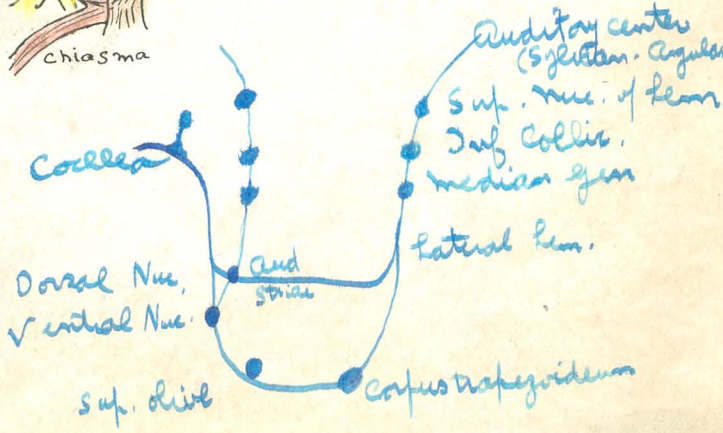 chiasma
Auditory center
(Sylvian. Angular
Sup. Nuc. of Lem
Inf Collic.
median gen
Cochlea
Lateral Lem.
Aud
Striae
Dorsal Nuc.
Ventral Nuc.
Sup. olive
Corpus trapezoideum